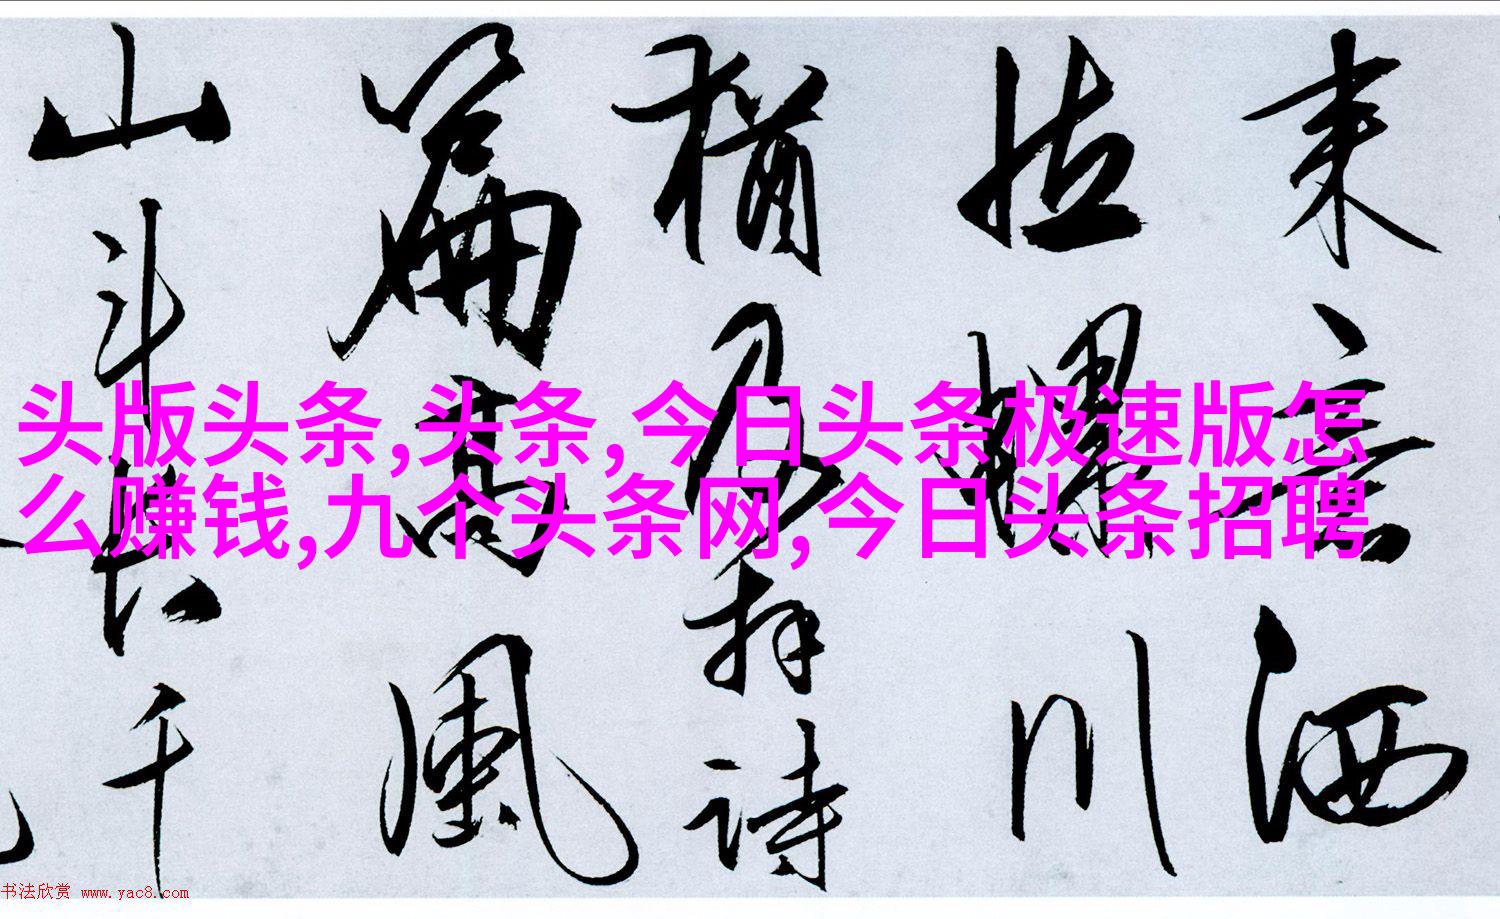 头版头条,头条,今日头条极速版怎
么赚钱,九个头条网,今日头条招聘
来意洒
川
犹及拜诗
篇高风
山斗长千
书法欣赏 www.yac8.com